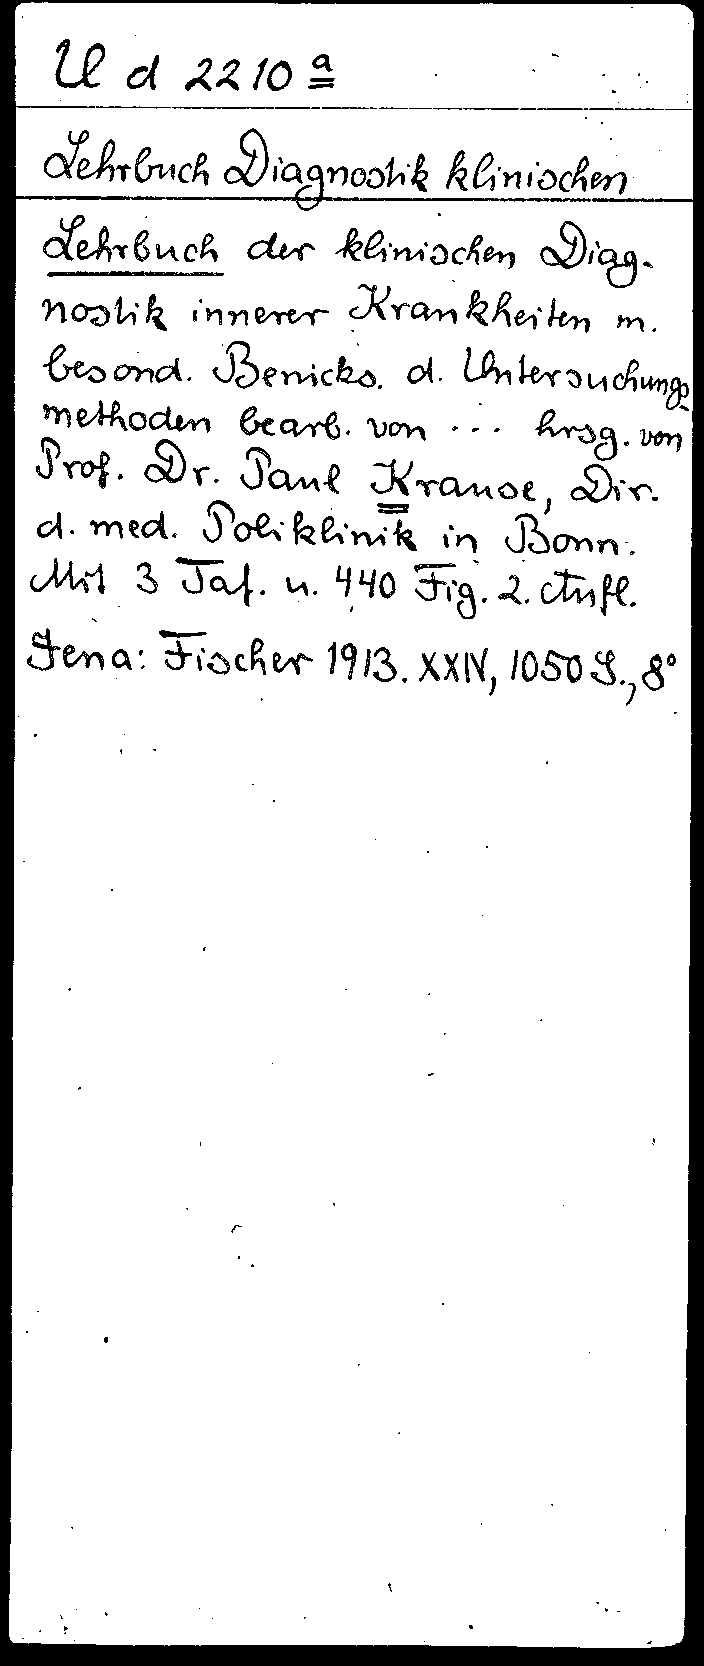 U d 2210 a
Lehrbuch Diagnostik klinischen
Lehrbuch der klinischen Diag-
nostik innerer Krankheiten m.
besond. Berücks. d. Untersuchungs-
methoden bearb. von ... hrsg. von
Prof. Dr. Paul Krause, Dir.
d. med. Poliklinik in Bonn.
Mit 3 Taf. u. 440 Fig. 2. Aufl.
Jena: Fischer 1913. XXIV, 1050 S., 8°